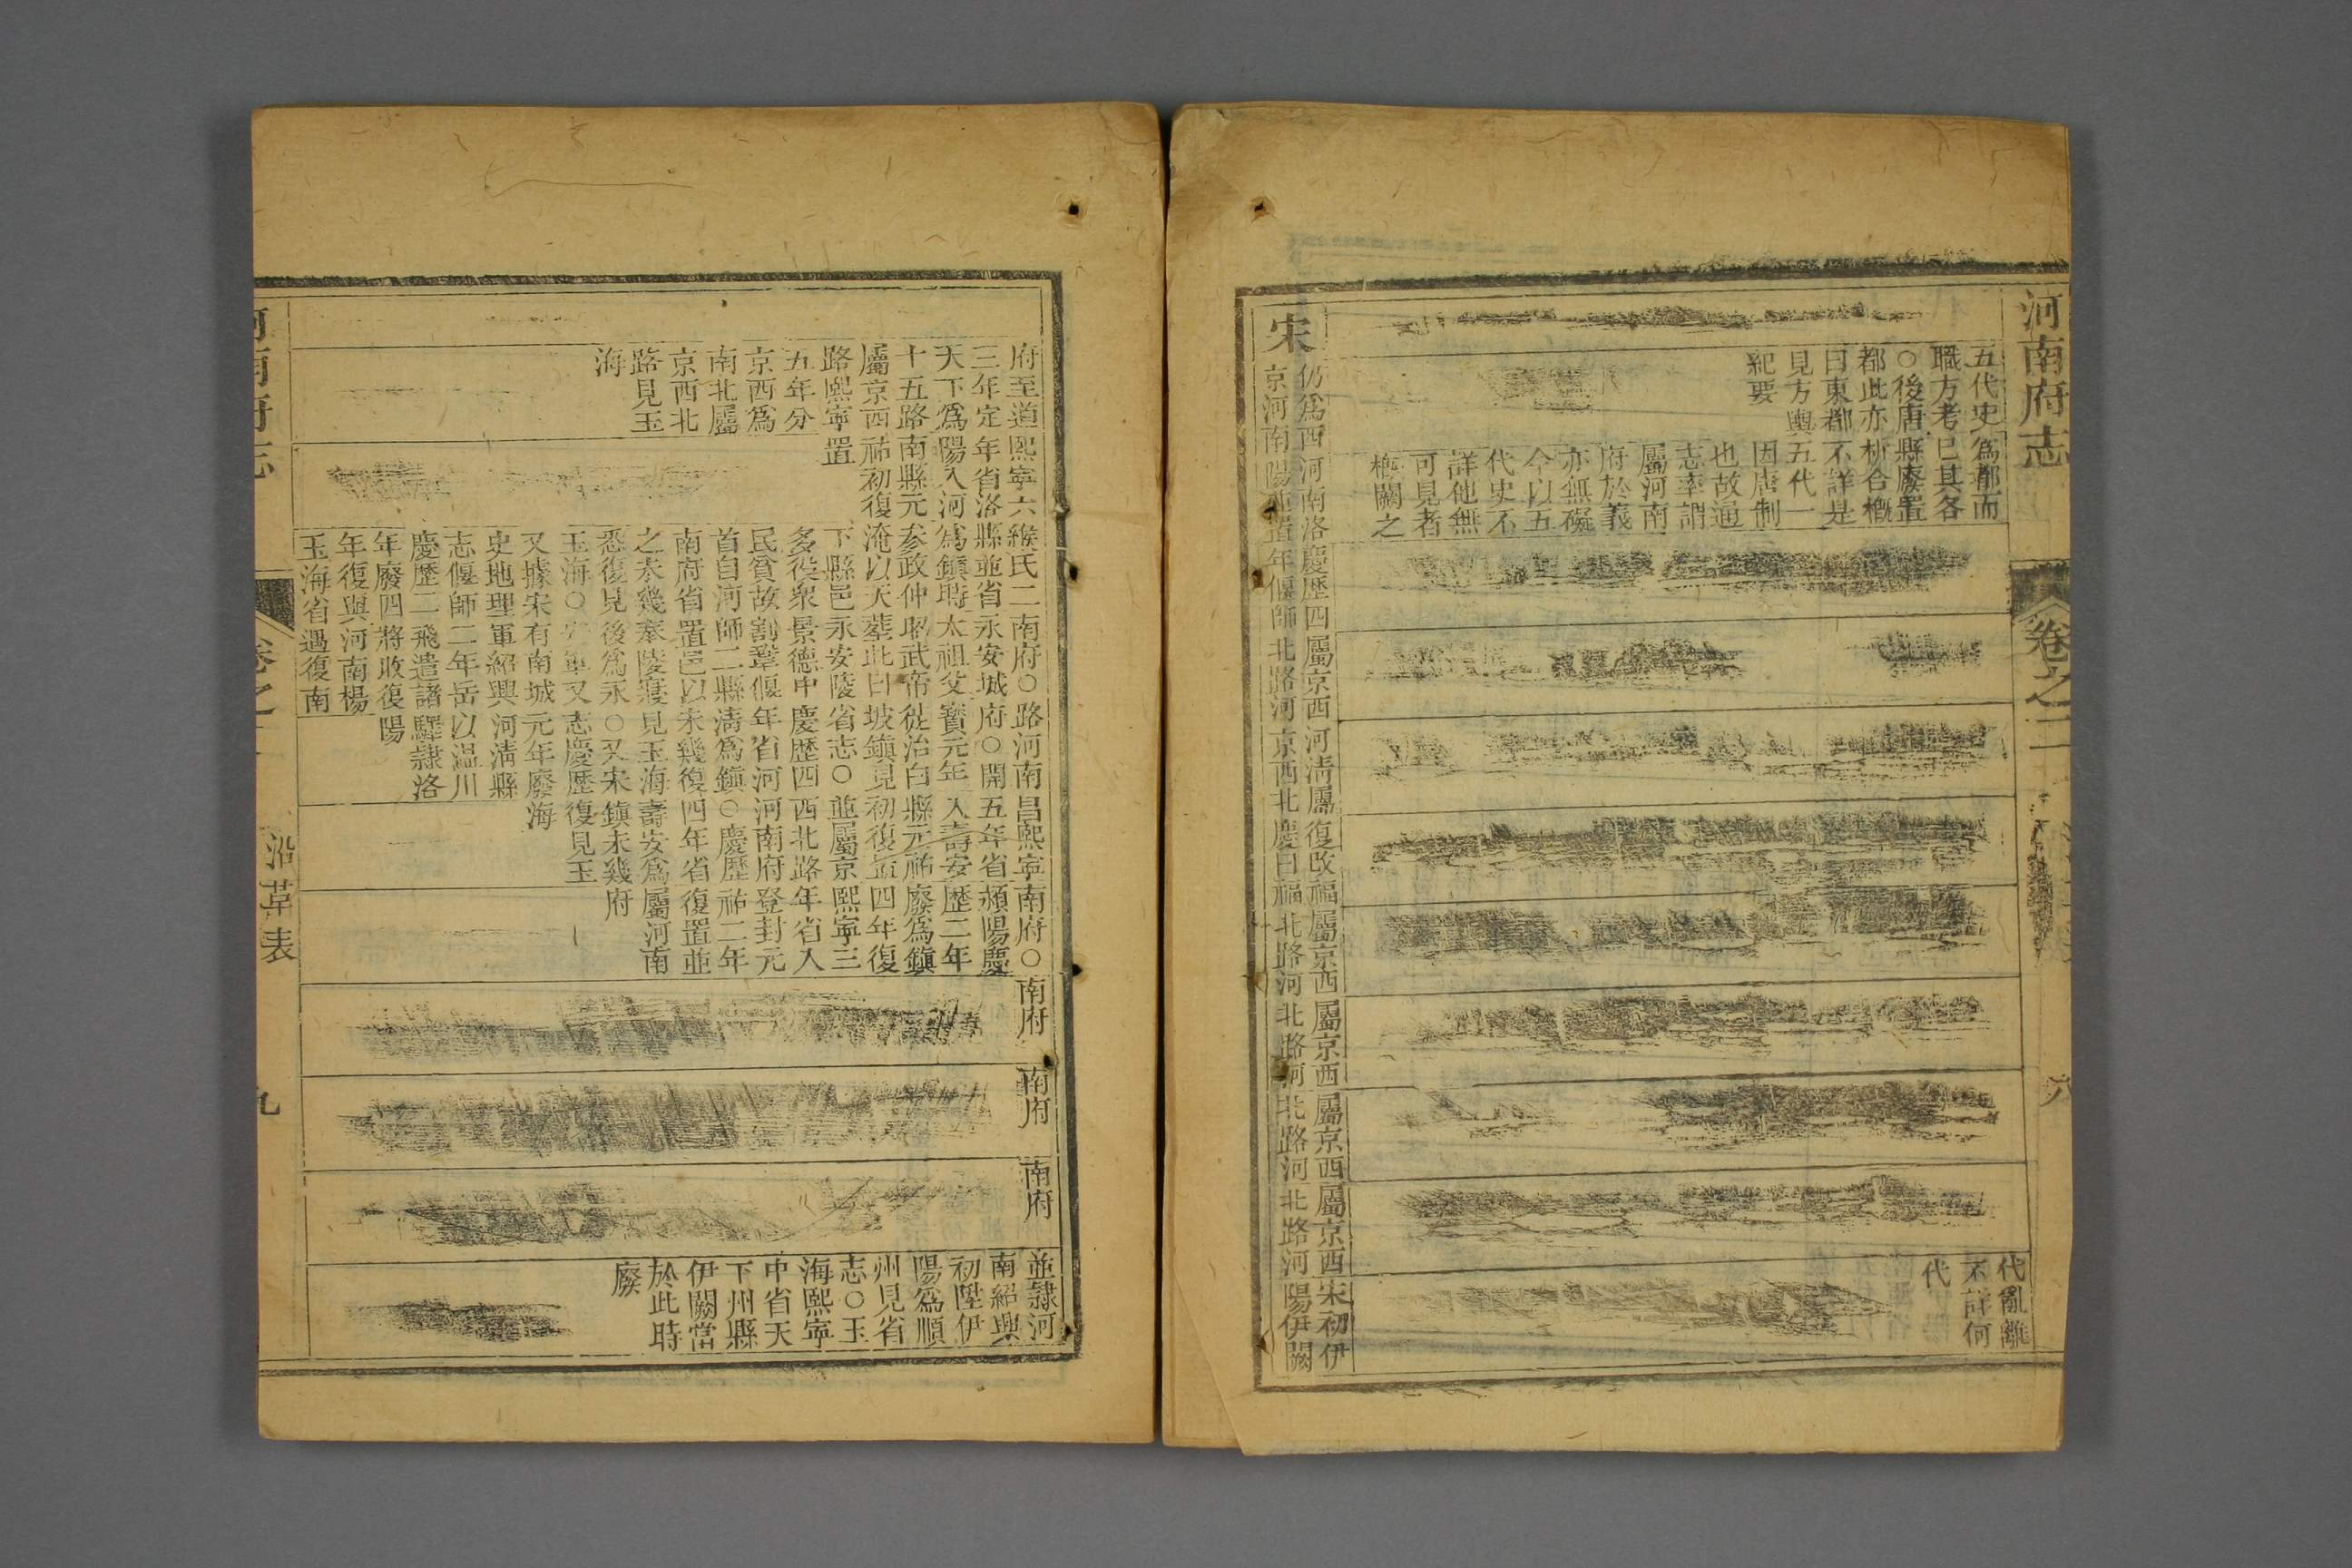 河南府志
卷之二
八
五代史
職方考
○後唐
都此亦
曰東都
見方輿
紀要
為都而
已其各
縣廢置
析合概
不詳是
五代一
因唐制
也故通
志率謂
屬河南
府於義
亦無礙
今以五
代史不
詳他無
可見者
概闕之
代亂離
不詳何
代
宋
仍為西
京河南
河南洛
陽並置
慶歷四
年偃師
屬京西
北路河
河清屬
京西北
復改福
慶曰福
屬京西
北路河
屬京西
北路河
屬京西
北路河
屬京西
北路河
宋初伊
陽伊闕
府至道
三年定
天下為
十五路
屬京西
路熙寧
五年分
京西為
南北屬
京西北
路見玉
海
熙寧六
年省洛
陽入河
南縣元
祐初復
置
緱氏二
縣並省
為鎮時
參政仲
淹以天
下縣邑
多役眾
民貧故
首自河
南府省
之未幾
悉復見
玉海○
又據宋
史地理
志偃師
慶歷二
年廢四
年復與
玉海省
南府○
永安城
太祖父
昭武帝
葬此曰
永安陵
景德中
割鞏偃
師二縣
置邑以
奉陵寢
後為永
安軍又
有南城
軍紹興
二年岳
飛遣諸
將收復
河南楊
遇復南
路河南
府○開
寶元年
徙治白
坡鎮見
省志○
慶歷四
年省河
清為鎮
未幾復
見玉海
○又宋
志慶歷
元年廢
河清縣
以溫川
驛隸洛
陽
昌熙寧
五年省
入壽安
縣元祐
初復置
並屬京
西北路
河南府
○慶歷
四年省
壽安為
鎮未幾
復見玉
海
南府○
潁陽慶
歷二年
廢為鎮
四年復
熙寧三
年省入
登封元
祐二年
復置並
屬河南
府
南府
南府
南府
並隸河
南紹興
初陞伊
陽為順
州見省
志○玉
海熙寧
中省天
下州縣
伊闕當
於此時
廢
河南府志
卷之二
沿革表
九